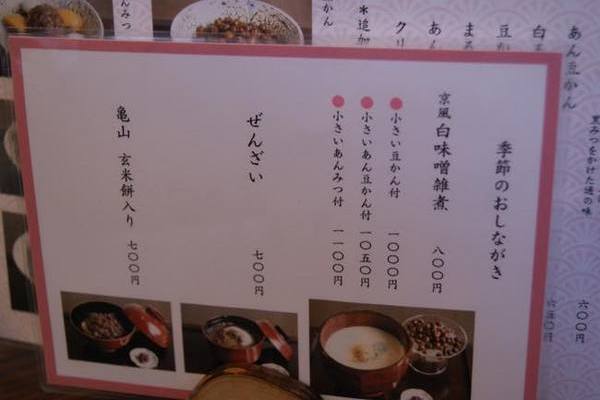 季節のおしながき
京風 白味噌雑煮 八〇〇円
●小さい豆かん付 一〇〇〇円
●小さいあん豆かん付 一〇五〇円
●小さいあんみつ付 一一〇〇円
ぜんざい 七〇〇円
亀山 玄米餅入り 七〇〇円
あん豆かん 六〇〇円
黒みつをかけた通の味
六五〇円
豆か
あん
クリ
＊追加
かん
んみつ